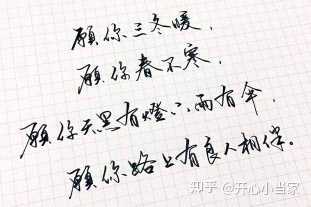 愿你三冬暖，
愿你春不寒，
愿你天黑有燈下雨有伞，
愿你路上有良人相伴。
知乎 @开心小当家